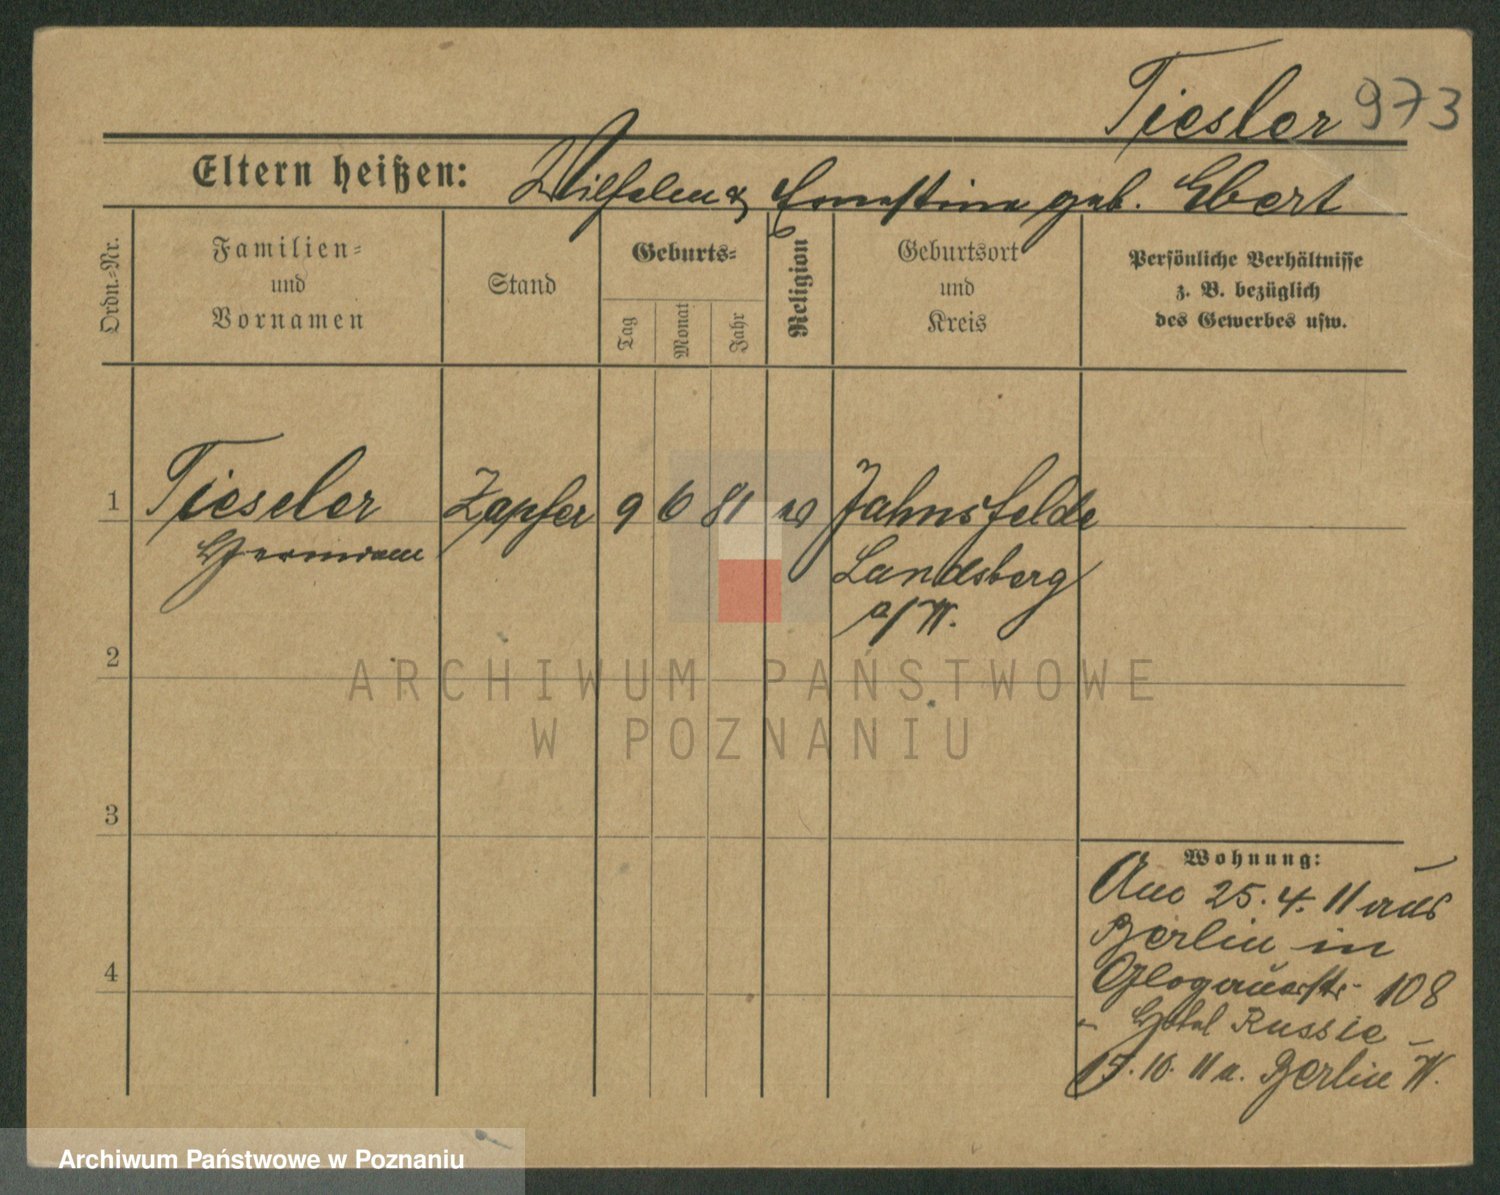 Tiesler 973
Eltern heißen: Wilhelm & Ernestine geb. Ebert
Ordn.-Nr.
Familien-
und
Vornamen
Stand
Geburts-
Tag
Monat
Jahr
Religion
Geburtsort
und
Kreis
Persönliche Verhältnisse
z. B. bezüglich
des Gewerbes usw.
1 Tieseler Zapfer 9 6 81 Jahnsfelde
Hermann Landsberg
a/W.
2
ARCHIWUM PAŃSTWOWE
W POZNANIU
3
Wohnung:
25. 4. 11 aus
Berlin in
Glogauerstr. 108
Hotel Russie
15. 10. 11 n. Berlin W.
4
Archiwum Państwowe w Poznaniu